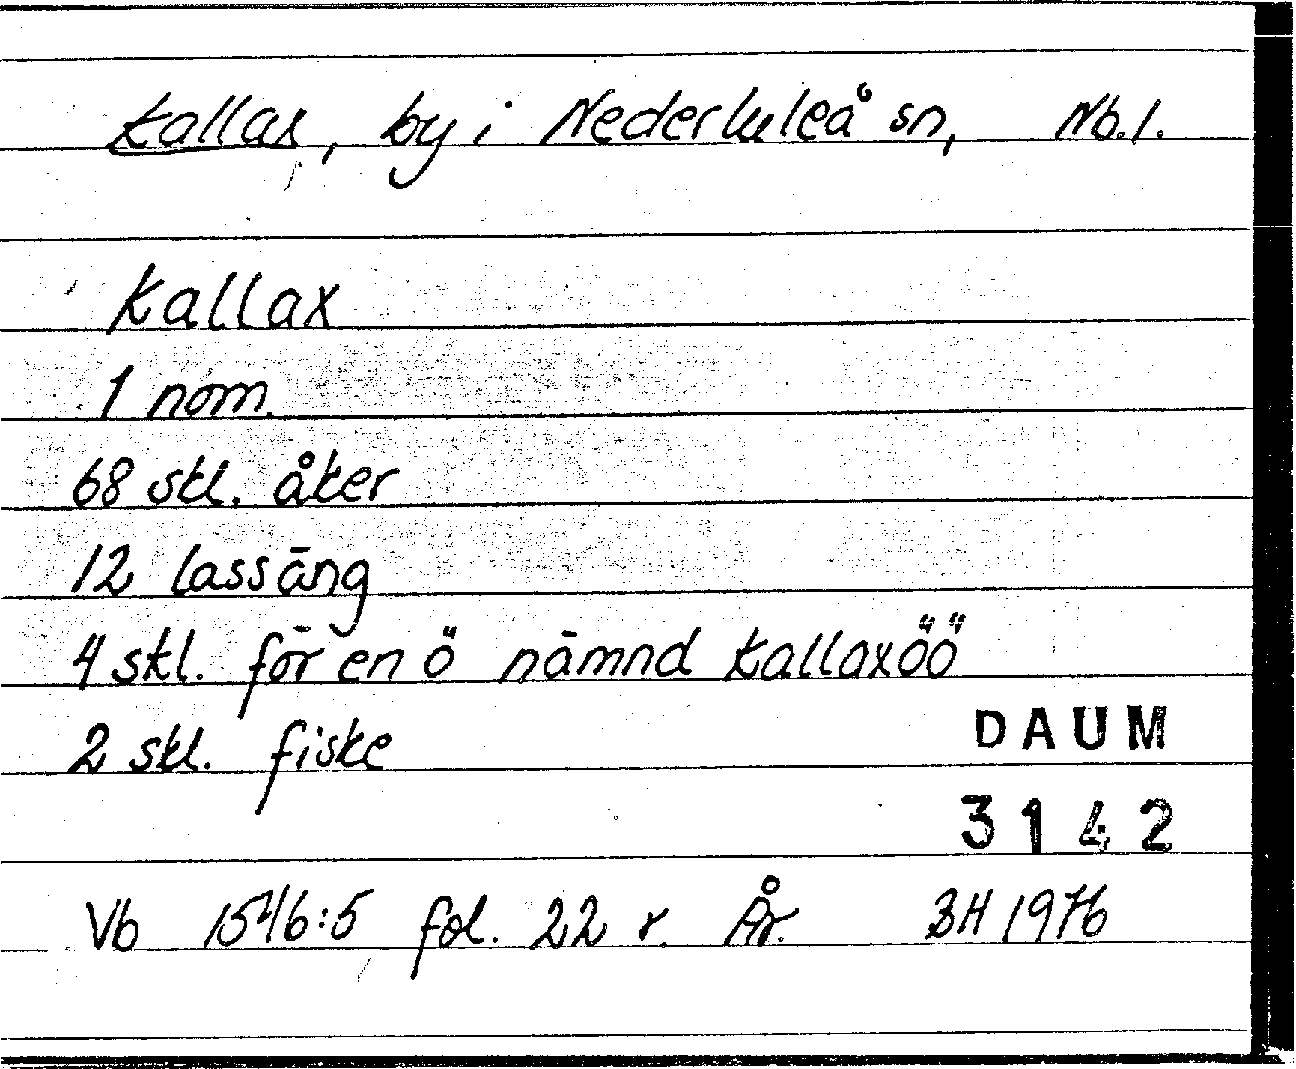 Kallax, by i Nederluleå sn, Nb.l.
Kallax
1 nom.
68 skl. åker
12 lassäng
4 skl. för en ö nämnd Kallaxöö
2 skl. fiske
DAUM
3142
Vb 1546:5 fol. 22 r. År. BH 1976